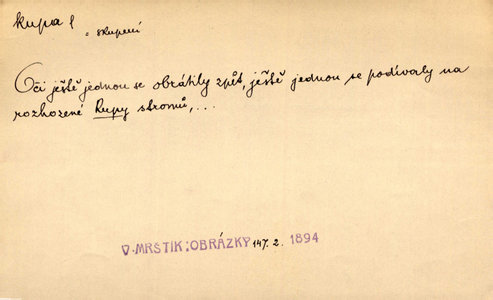 kupa 1
o skupení
Oči ještě jednou se obrátily zpět, ještě jednou se podívaly na
rozhozené kupy stromů,...
V. MRŠTÍK: OBRÁZKY 147. 2. 1894